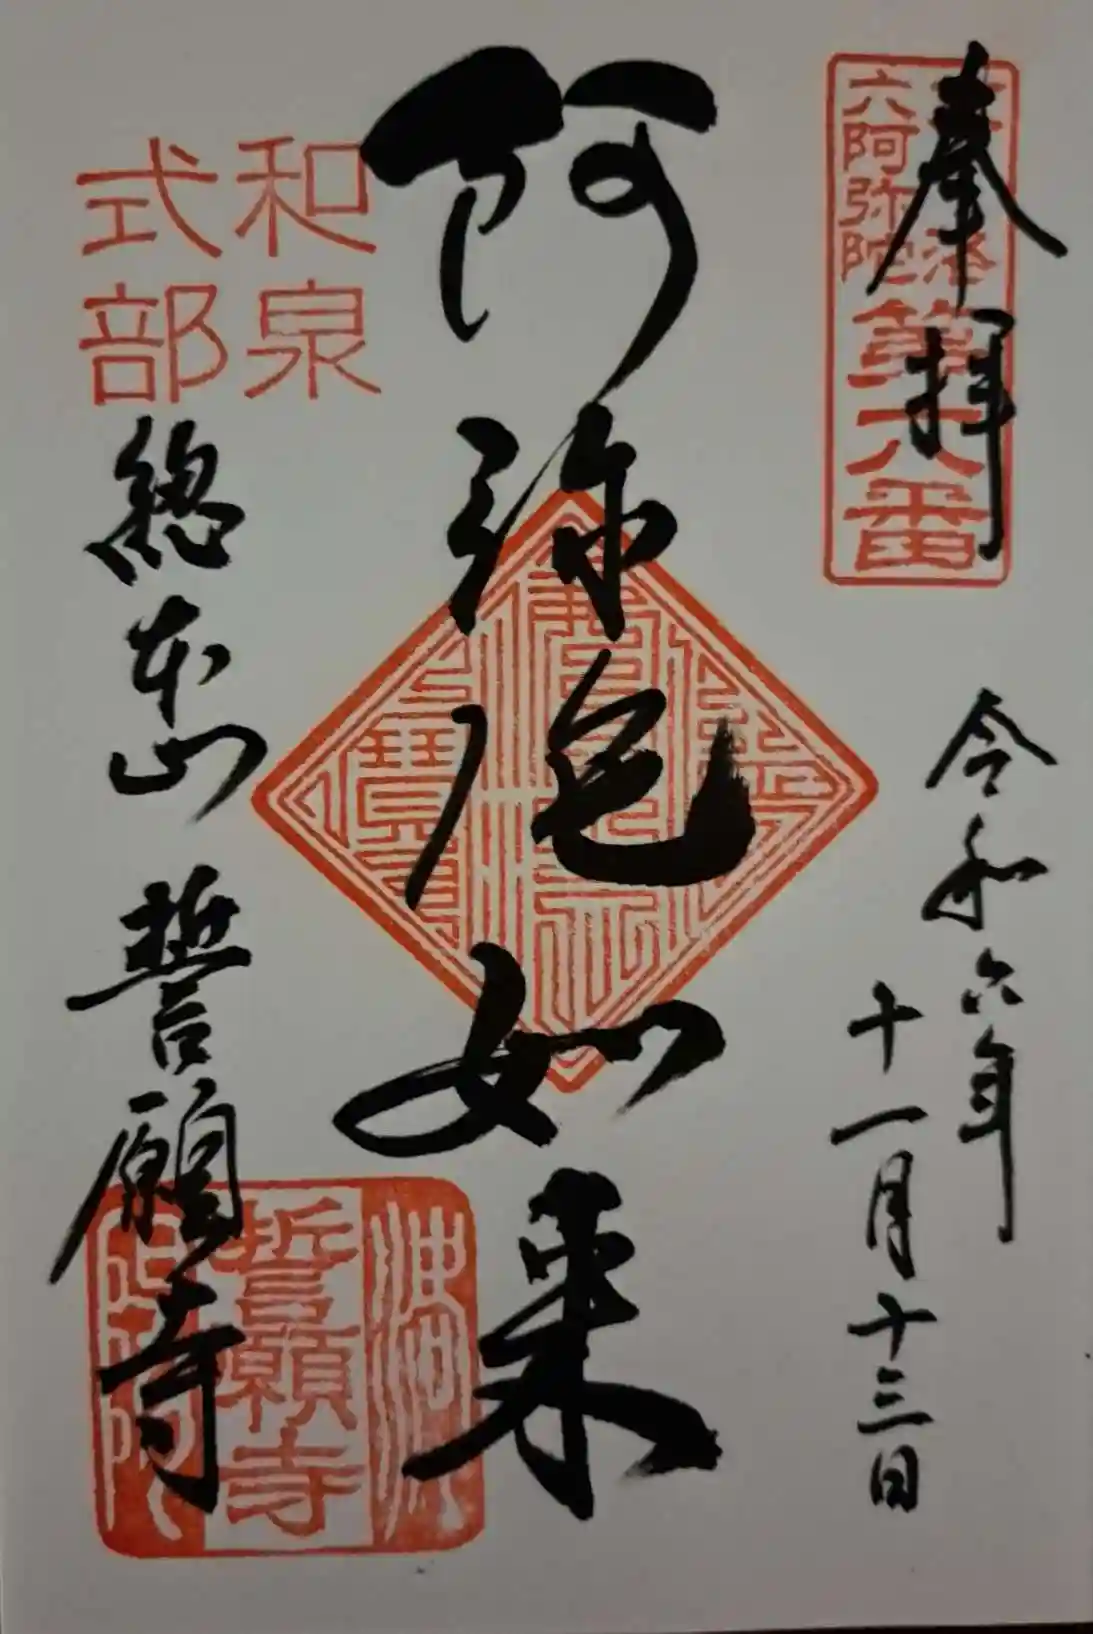 奉拝
洛
六阿弥陀
第六番
令和六年
十一月十三日
阿弥陀如来
和泉
式部
總本山 誓願寺
佛法僧寶
誓願寺